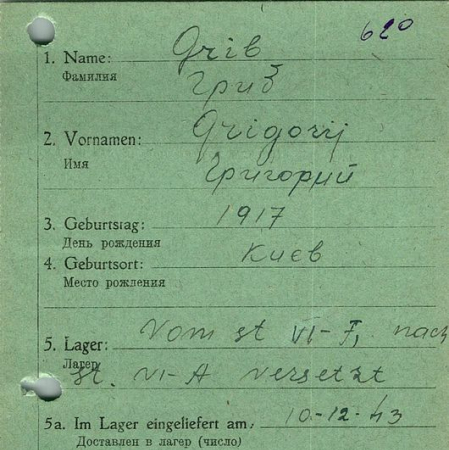 620
1. Name: Grib
Фамилия Гриб
2. Vornamen: Grigorij
Имя Григорий
3. Geburtstag: 1917
День рождения
4. Geburtsort: Києв
Место рождения
Vom st VI-F, nach
5. Lager:
Лагерь st. VI-A versetzt
5a. Im Lager eingeliefert am: 10-12-43
Доставлен в лагер (число)